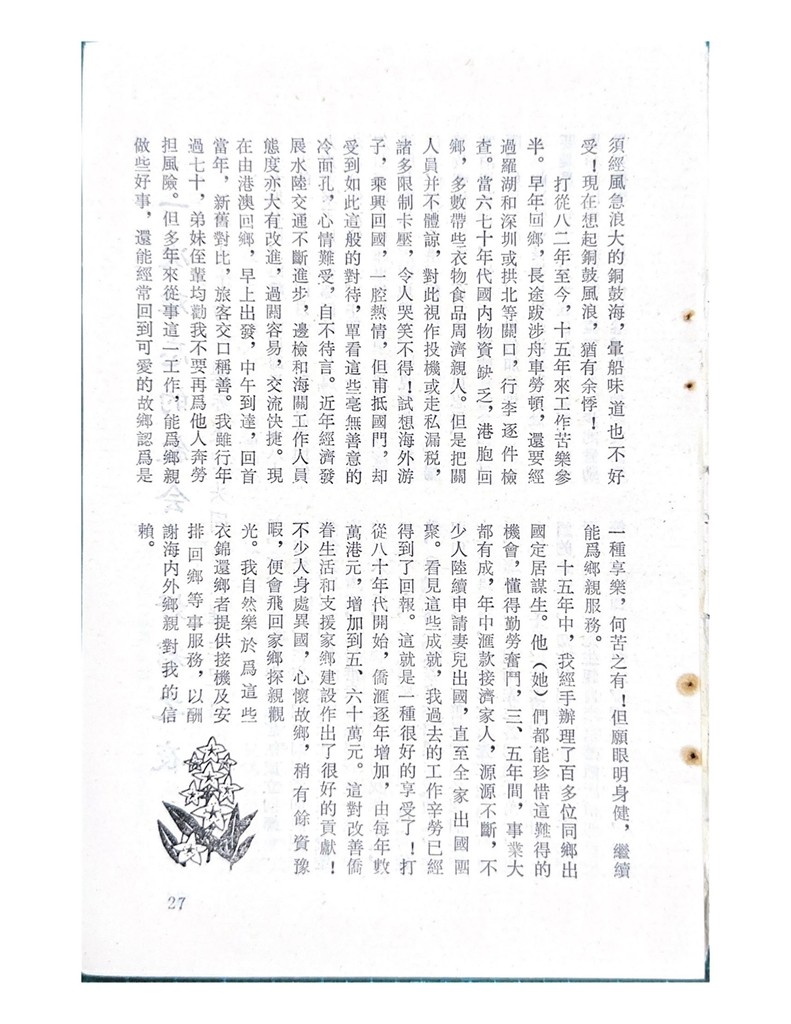 須經風急浪大的銅鼓海，暈船味道也不好
受！現在想起銅鼓風浪，猶有余悸！
打從八二年至今，十五年來工作苦樂參
半。早年回鄉，長途跋涉舟車勞頓，還要經
過羅湖和深圳或拱北等關口，行李逐件檢
查。當六七十年代國内物資缺乏，港胞回
鄉，多數帶些衣物食品周濟親人。但是把關
人員并不體諒，對此視作投機或走私漏税，
諸多限制卡壓，令人哭笑不得！試想海外游
子，乘興回國，一腔熱情，但甫抵國門，却
受到如此這般的對待，單看這些毫無善意的
冷面孔，心情難受，自不待言。近年經濟發
展水陸交通不斷進步，邊檢和海關工作人員
態度亦大有改進，過關容易，交流快捷。現
在由港澳回鄉，早上出發，中午到達，回首
當年，新舊對比，旅客交口稱善。我雖行年
過七十，弟妹侄輩均勸我不要再爲他人奔勞
担風險。但多年來從事這一工作，能爲鄉親
做些好事，還能經常回到可愛的故鄉認爲是
一種享樂，何苦之有！但願眼明身健，繼續
能爲鄉親服務。
十五年中，我經手辦理了百多位同鄉出
國定居謀生。他（她）們都能珍惜這難得的
機會，懂得勤勞奮鬥，三、五年間，事業大
都有成，年中滙款接濟家人，源源不斷，不
少人陸續申請妻兒出國，直至全家出國團
聚。看見這些成就，我過去的工作辛勞已經
得到了回報。這就是一種很好的享受了！打
從八十年代開始，僑滙逐年增加，由每年數
萬港元，增加到五、六十萬元。這對改善僑
眷生活和支援家鄉建設作出了很好的貢獻！
不少人身處異國，心懷故鄉，稍有餘資豫
暇，便會飛回家鄉探親觀
光。我自然樂於爲這些
衣錦還鄉者提供接機及安
排回鄉等事服務，以酬
謝海内外鄉親對我的信
賴。
27